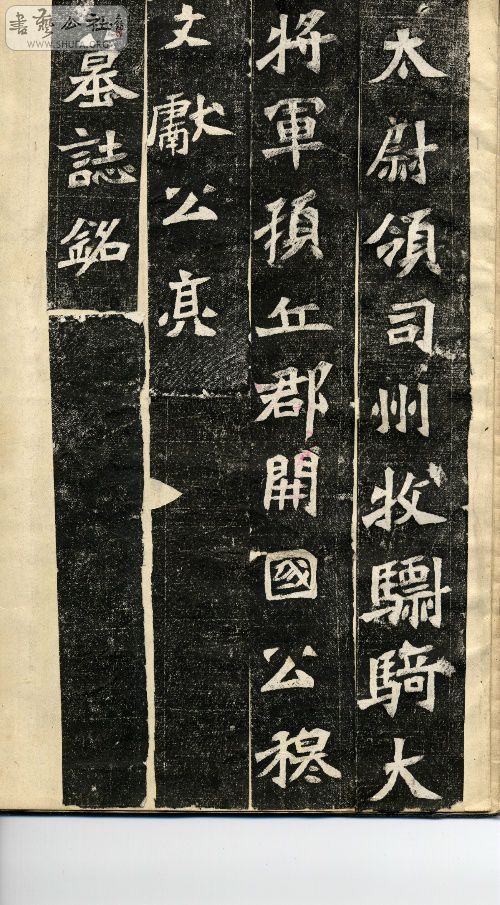 太尉領司州牧驃騎大
將軍頓丘郡開國公穆
文獻公亮
墓誌銘
書藝公社
WWW.SHUFA.ORG